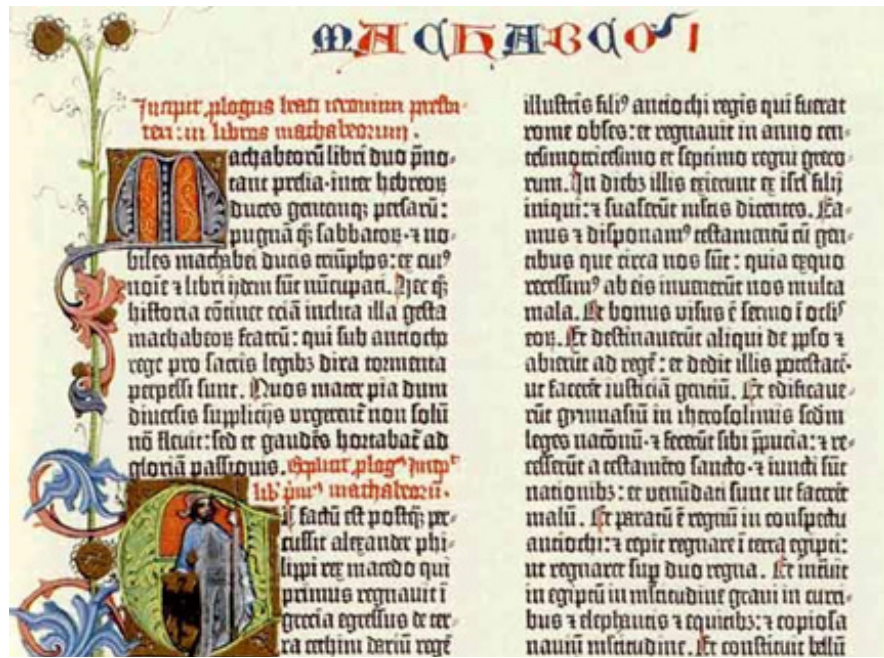 MACHABEO I
Incipit prologus beati ieronimi presbi-
teri: in libros machabeorum.
Machabeorū libri duo p̄no-
tant prelia·inter hebreoꝝ
duces gentemqꝫ persarū:
pugnā qꝫ sabbatoꝝ·⁊ no-
biles machabei ducis triūphos: ex cuiꝰ
noīe ⁊ libri ijdem sūt nūcupati. Hec qꝫ
historia cōtinet eciā inclita illa gesta
machabeoꝝ fratrū: qui sub antiocho
rege pro sacris legibꝫ dira tormenta
perpessi sunt. Quos mater pia dum
diuersis supplicijs urgerent᷑ non solū
nō fleuit: sed et gaudēs hortabat᷑ ad
gloriā passionis. Explicit plogꝰ Incipᵗ
lib᾽ prīꝰ machabeorū.
Et factū est postqꝫ per-
cussit alexander phi-
lippi rex macedo qui
primus regnauit ī
grecia egressus de ter-
ra cethim dariū regē
illustris filiꝰ antiochi regis qui fuerat
rome obses: et regnauit in anno cen-
tesimotricesimo et septimo regni greco-
rum. In diebꝫ illis exierunt ex isrl̄ filij
iniqui: ⁊ suaserūt mltis dicentes. Ea-
mus ⁊ disponamꝰ testamentū cū gen-
tibus que circa nos sūt: quia exquo
recessimꝰ ab eis inuenerūt nos multa
mala. Et bonus visus ē sermo ī oclīs
eoꝝ. Et destinauerūt aliqui de pplo ⁊
abierūt ad regē: et dedit illis potestatē·
ut facerēt iusticiā gentiū. Et edificaue-
rūt gymnasiū in iherosolimis scdm
leges nacōnū·⁊ fecerūt sibi ꝓpucia: ⁊ re-
cesserūt a testamēto sancto·⁊ iuncti sūt
nationibꝫ: et venūdati sunt ut facerēt
malū. Et paratū ē regnū in conspectu
antiochi: ⁊ cepit regnare ī terra egipti:
ut regnaret sup duo regna. Et intrauit
in egiptū in mltitudine graui in curri-
bus ⁊ elephantis ⁊ equitibꝫ: ⁊ copiosa
nauiū mltitudine. Et constituit bellū